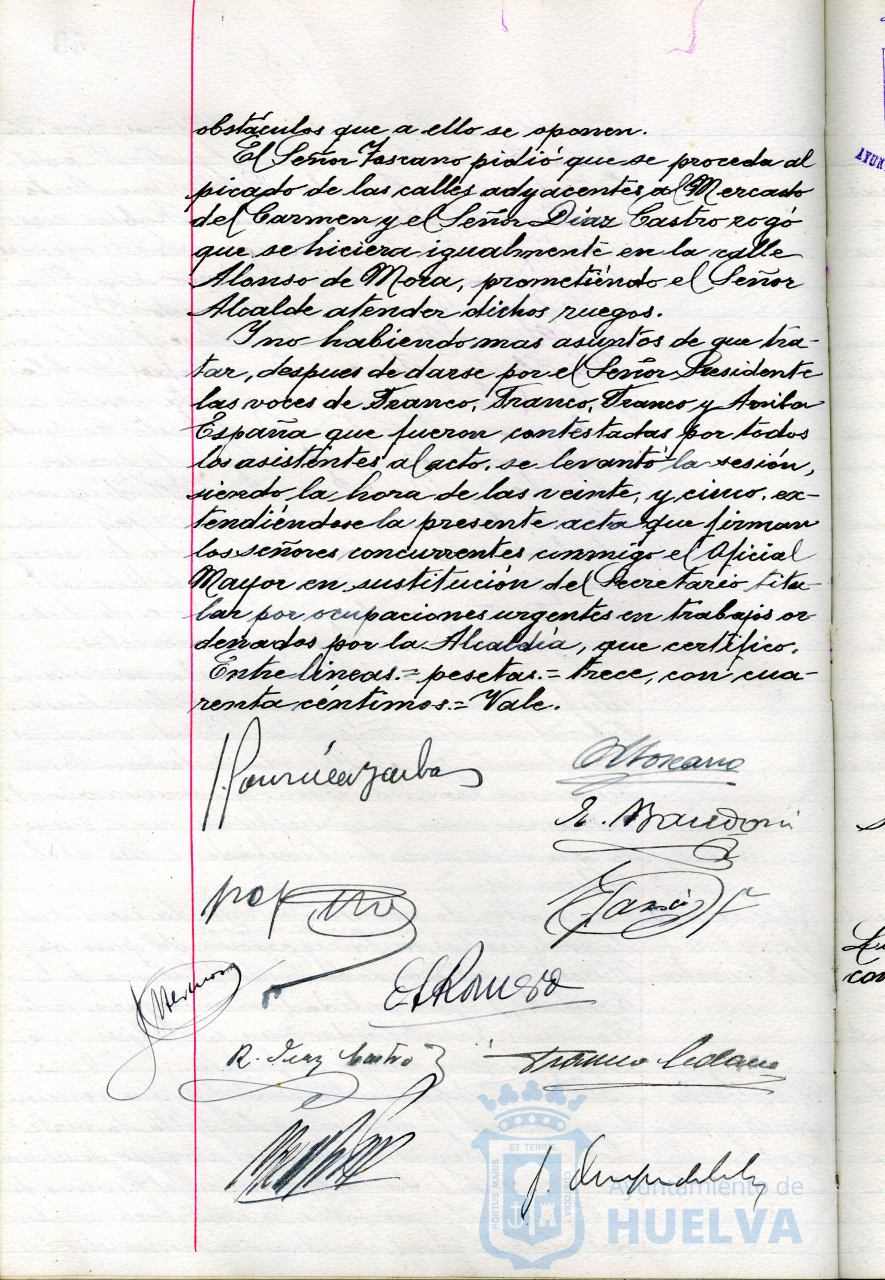 obstáculos que a ello se oponen.
El Señor Toscano pidió que se proceda al
picado de las calles adyacentes al Mercado
del Carmen y el Señor Díaz Castro rogó
que se hiciera igualmente en la calle
Alonso de Mora, prometiéndo el Señor
Alcalde atender dichos ruegos.
Y no habiendo mas asuntos de que tra-
tar, despues de darse por el Señor Presidente
las voces de Franco, Franco, Franco y Arriba
España que fueron contestadas por todos
los asistentes al acto, se levantó la sesión,
siendo la hora de las veinte, y cinco, ex-
tendiéndose la presente acta que firman
los señores concurrentes conmigo el Oficial
Mayor en sustitución del Secretario titu-
lar por ocupaciones urgentes en trabajos or-
denados por la Alcaldía, que certifico.
Entre lineas.= pesetas.= trece, con cua-
renta céntimos.= Vale.
Toscano
E. Romero
R. Diaz Castro
ET TERRE
PORTUS MARIS
CUSTODIA
Ayuntamiento de
HUELVA